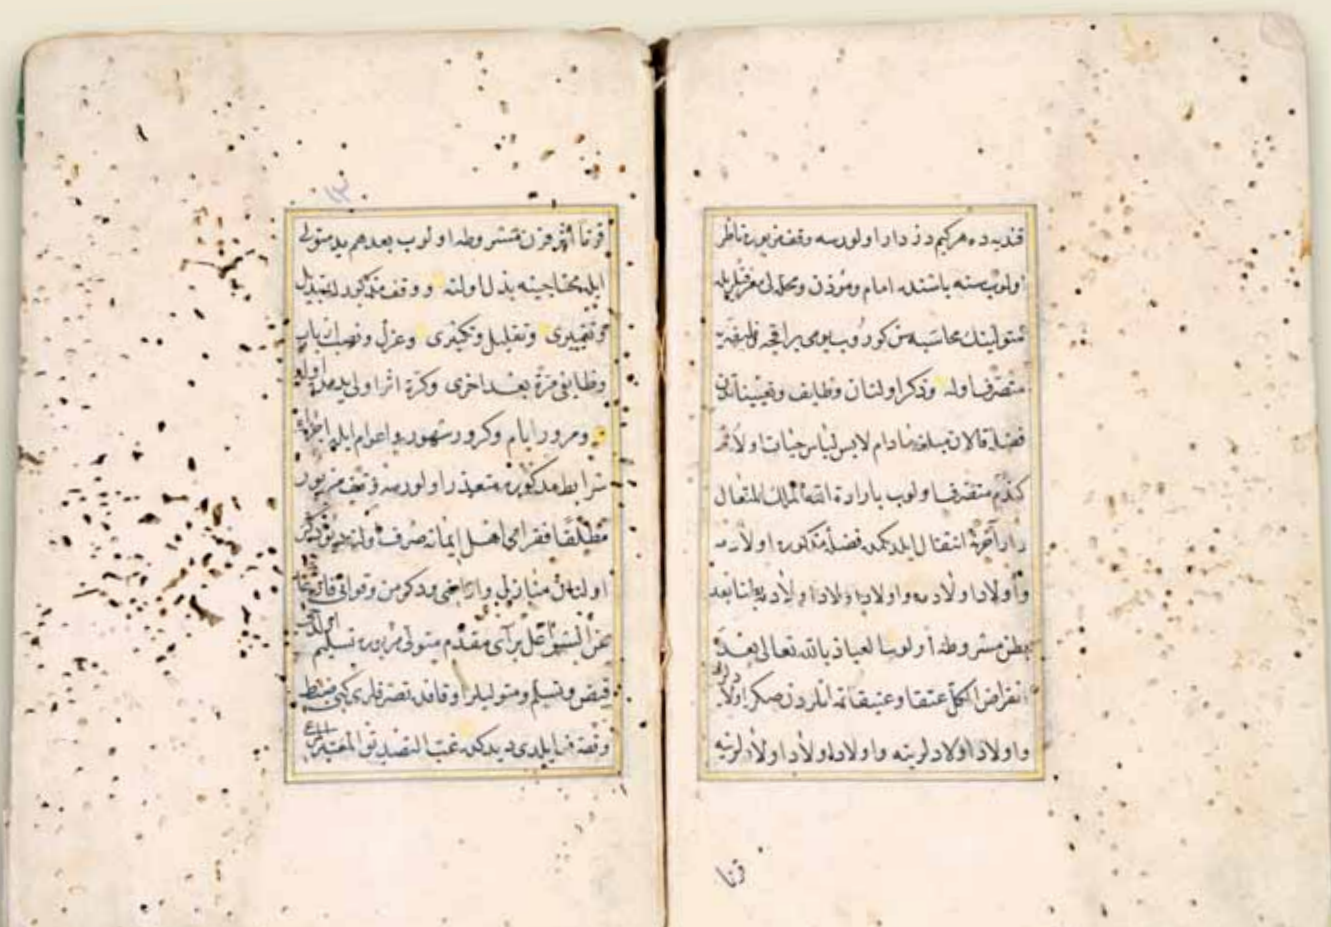 قلعه‌ده هركيم دزدار اولورسه وقف مزبوره ناظر
اولوب سنه باشنده امام ومؤذن ومحله لى معرفتلريله
متولينك محاسبه سن كوروب يومى بر اقچه وظيفه يه
متصرف اوله وذكر اولنان وظايف وتعييناتدن
فضله قالان مبلغه مادام لابس لباس حيات اولام
كندم متصرف اولوب بارادة الله الملك المتعال
دار آخرته انتقال ايلدكمده فضلهٔ مذكوره اولادمه
واولاد اولادمه واولاد اولاد اولادمه بطنا بعد
بطن مشروطه اولوب العياذ بالله تعالى بعد
انقراض الكل عتقا وعتيقاتمه انلردن صكره اولاد لرينه
واولاد اولادلرينه واولاد اولاد اولادلرينه
قرنا
١٣
قرنا قرن مشروطه اولوب بعدهم يد متولى
ايله محتاجينه بذل اولنه ووقف مذكورك تبديل
وتغييرى وتقليل وتكثيرى وعزل ونصب ارباب
وظايفى مرة بعد اخرى وكرة اثر اولى يدمده اوله
ومرور ايام وكرور شهور واعوام ايله اجراى
شرايط مذكوره متعذر اولورسه وقف مزبور
مطلقا فقراى اهل ايمانه صرف اولنه ديو ذكر
اولنان منازل واراضى ودكرمن وقوانى فارغا
عن الشواغل براى مقدم متولى مزبوره تسليم
قبض وتسلم ومتوليلر اوقافده تصرفلرى كبى ضبط
وتصرف ايلدى ديدكده غب التصديق المعتبر